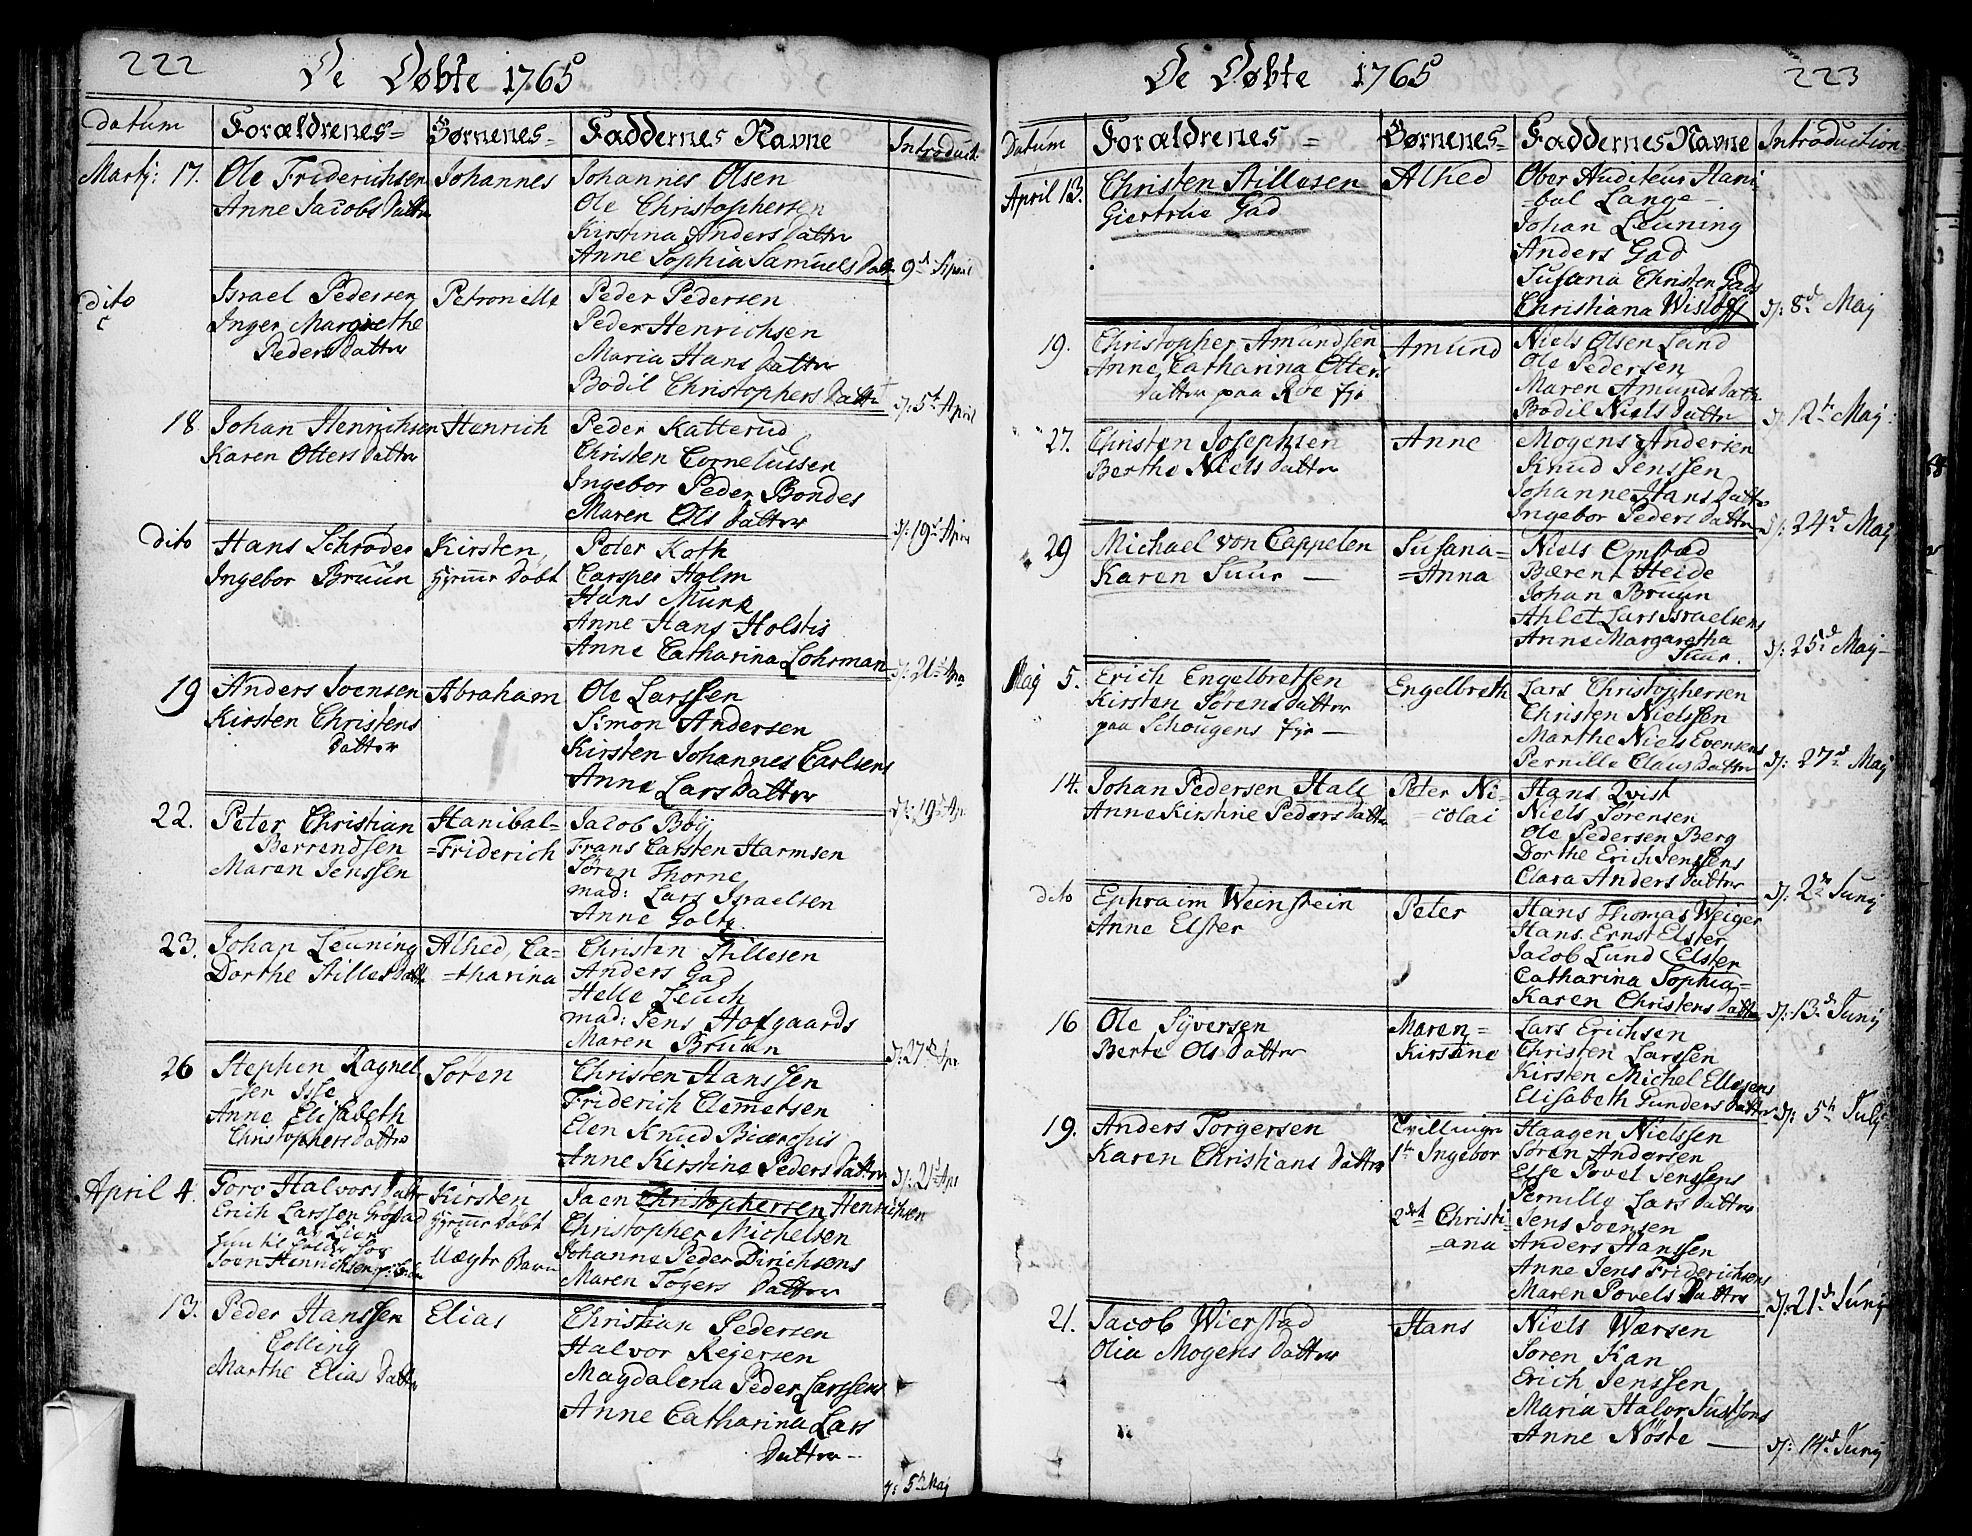 222
De Døbte 1765
Datum
Forældrenes=
Børnenes=
Faddernes Navne
Introduct:
Martÿ: 17.
Ole Friderichsen
Anne Jacobs Datter
Johannes
Johannes Olsen
Ole Christophersen
Kirstina Anders Datter
Anne Sophia Samuels Datt.
9d April
dito
Israel Pedersen
Inger Margrethe
Peders Datter
Petronille
Peder Pedersen
Peder Henrichsen
Maria Hans Datter
Bodil Christophers Datter
5t April
18.
Johan Henrichsen
Karen Otters Datter
Henrich
Peder Katterud
Christen Corneliusen
Ingebor Peder Bondes
Maren Ols Datter
19d Apr
Dito
Hans Schrøder
Ingebor Bruün
Kirsten,
hjemme Døbt
Peter Koth
Casper Holm
Hans Munk
Anne Hans Holstis
Anne Catharina Lohrman
21d Apr
19
Anders Joensen
Kirsten Christens
Datter
Abraham
Ole Larssen
Simon Andersen
Kirsten Johannes Carlsens
Anne Lars Datter
19d Apr
22.
Peter Christian
Berrendsen
Maren Jenssen
Hanibal=
=Friderich
Jacob Boÿ
Frans Carsten Harmsen
Søren Thorne
mad: Lars Israelsen
Anne Golte
23.
Johan Leuning
Dorthe Stilles Datt.
Alhed, Ca=
=tharina
Christen Stillesen
Anders Gad
Helle Leuch
mad: Jens Hofgaards
Maren Bruün
27d Apr
26
Stephen Ragnel
sen
Anne Elisabeth
Christophers Datter
Søren
Christen Hanssen
Friderich Clemetsen
Elen Knud
Anne Kirstine Peders Datter
21d Apr
April 4.
Goro Halvors Datter
Erich Larssen
af Lier
Joen Henrichsen
Kirsten
hjemme Døbt
Uægte Barn
Jaen Christophersen Henrichsen
Christopher Michelsen
Johanne Peder Dirichsens
Maren Togers Datter
13.
Peder Hanssen
Colling
Marthe Elias Datter
Elias
Christian Pedersen
Halvor Rejersen
Magdalena Peder Larssens
Anne Catharina Lars
Datter—
5th Maj
223
De Døbte 1765
Datum
Forældrenes =
Børnenes=
Faddernes Navne
Introduction=
April 13.
Christen Stillesen
Giertrue Gad
Alhed
Ober Auditeur Hani
=bal Lange —
Johan Leuning
Anders Gad
Susana Christen Gads
Christiana Wisløff
8d Maj
19.
Christopher Amundsen
Anne Catharina Otters
Datter paa Røe
Amund
Niels Olsen Lund
Ole Pedersen
Maren Amunds Datter
Bodil Niels Datter
12te Maj
27.
Christen Josephsen
Berthe Niels Datter
Anne
Mogens Andersen
Knud Jenssen
Johanne Hans Datter
Ingebor Peders Datter
24d Maj
29
Michael von Cappelen
Karen Tuur —
Susana=
=Anna
Niels Omsted
Bærent Heide
Johan Bruun
Ahlet Lars Israelsens
Anne Margaretha
Tuur.
25d Maj—
Maj 5.
Erich Engelbretsen
Kirsten Sørens Datter
paa Schougens —
Engelbreth
Lars Christophersen
Christen Nielssen
Marthe Niels Evensens
Pernille Claus Datter
27d Maj
14.
Johan Pedersen Hale
Anne Kirstine Peders Datter
Peter Ni=
=colai
Hans Qvist
Niels Sørensen
Ole Pedersen Berg
Dorthe Erich Jenssens
Clara Anders Datter
2den Junÿ
dito
Ephraim Weinstein
Anne Elster
Peter
Hans Thomas Weiger
Hans Ernst Elster
Jacob Lund Elster
Catharina Sophia=
Karen Christens Datter
13d Junÿ
16
Ole Sÿversen
Berte Ols Datter
Maren=
Kirstine
Lars Erichsen
Christen Larssen
Kirsten Michel Ellesens
Elisabeth Gunders Datter
5th Julÿ
19.
Anders Torgersen
Karen Christians Datter
Tvillinger
1te Ingebor
2det Christi=
=ana
Haagen Nielssen
Søren Andersen
Else Povel Jenssens
Pernille Lars Datter
Jens Joensen
Anders Hanssen
Anne Jens Friderichsens
Maren Povels Datter
21d Junÿ
21.
Jacob Wierstad
Olia Mogens Datter
Hans
Niels Wærsen
Søren Kan
Erich Jenssen
Maria Halvor
Anne Nøste —
14d Junÿ